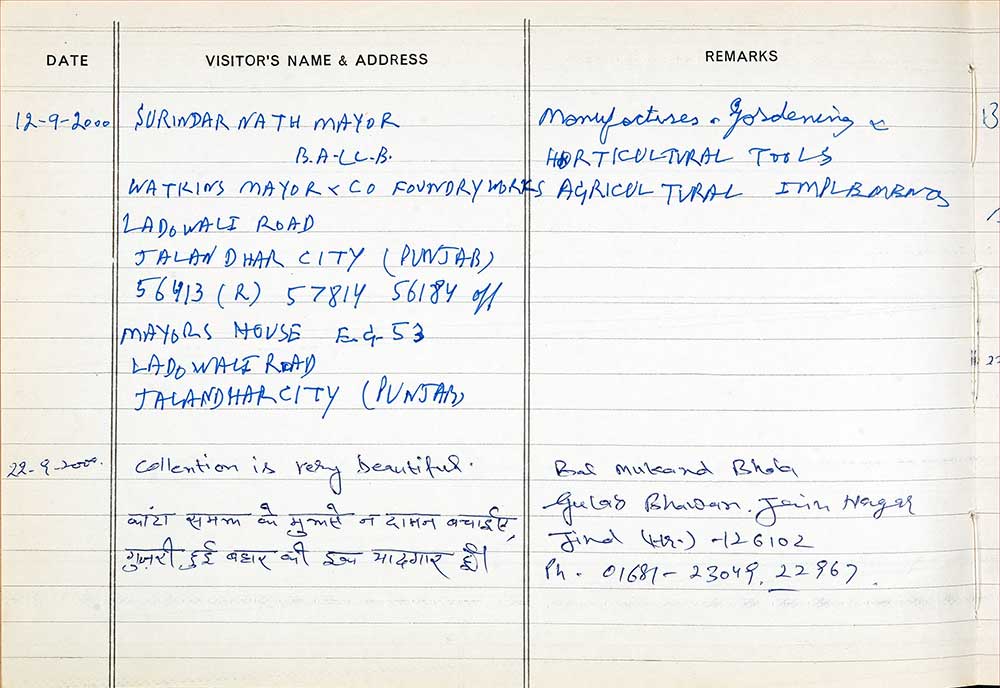 DATE
VISITOR'S NAME & ADDRESS
REMARKS
12-9-2000
SURINDAR NATH MAYOR
B.A-LL-B.
WATKINS MAYOR & CO FOUNDRY WORKS
LADOWALI ROAD
JALANDHAR CITY (PUNJAB)
56913 (R) 57814 56184 off
MAYORS HOUSE E.G-53
LADOWALI ROAD
JALANDHAR CITY (PUNJAB)
Manufactures - Gardening &
HORTICULTURAL TOOLS
AGRICULTURAL IMPLEMENTS
22-9-2000.
Collention is very beautiful.
कांटा समझ के मुझसे न दामन बचाईए,
गुज़री हुई बहार की इक यादगार हूँ।
Bal Mukand Bhola
Gulab Bhawan. Jain Nagar
Jind (Hr.) -126102
Ph. 01681-23049, 22967.